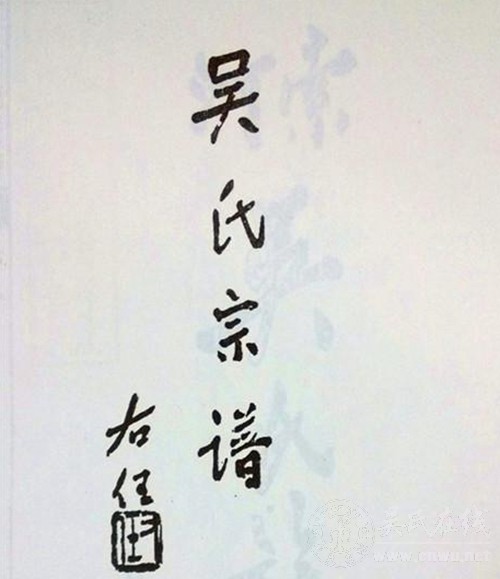 吴氏宗谱
右任
吴氏在线
www.cnwu.net